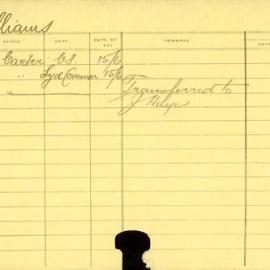 lliams
OFFICE DEPT. RATE OF PAY REMARKS DATE
Carter Cl. 15/6
" Syd Common 15/6
Transferred to
J Wilys